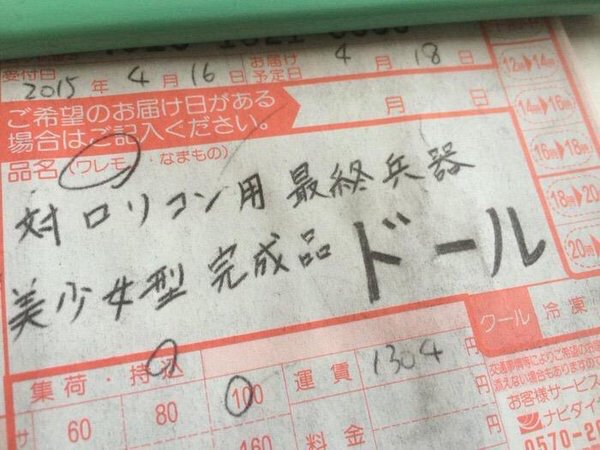 受付日 2015年 4月 16日 お届け予定日 4月 18日
ご希望のお届け日がある
場合はご記入ください。
月 日
品名(ワレモノ・なまもの)
対ロリコン用 最終兵器
美少女型 完成品 ドール
12時▶14時
14時▶16時
16時▶18時
クール 冷凍
集荷・持込
60 80 100
160
運賃 1304円
料金 円
お客様サービス
ナビダイヤ
0570-20